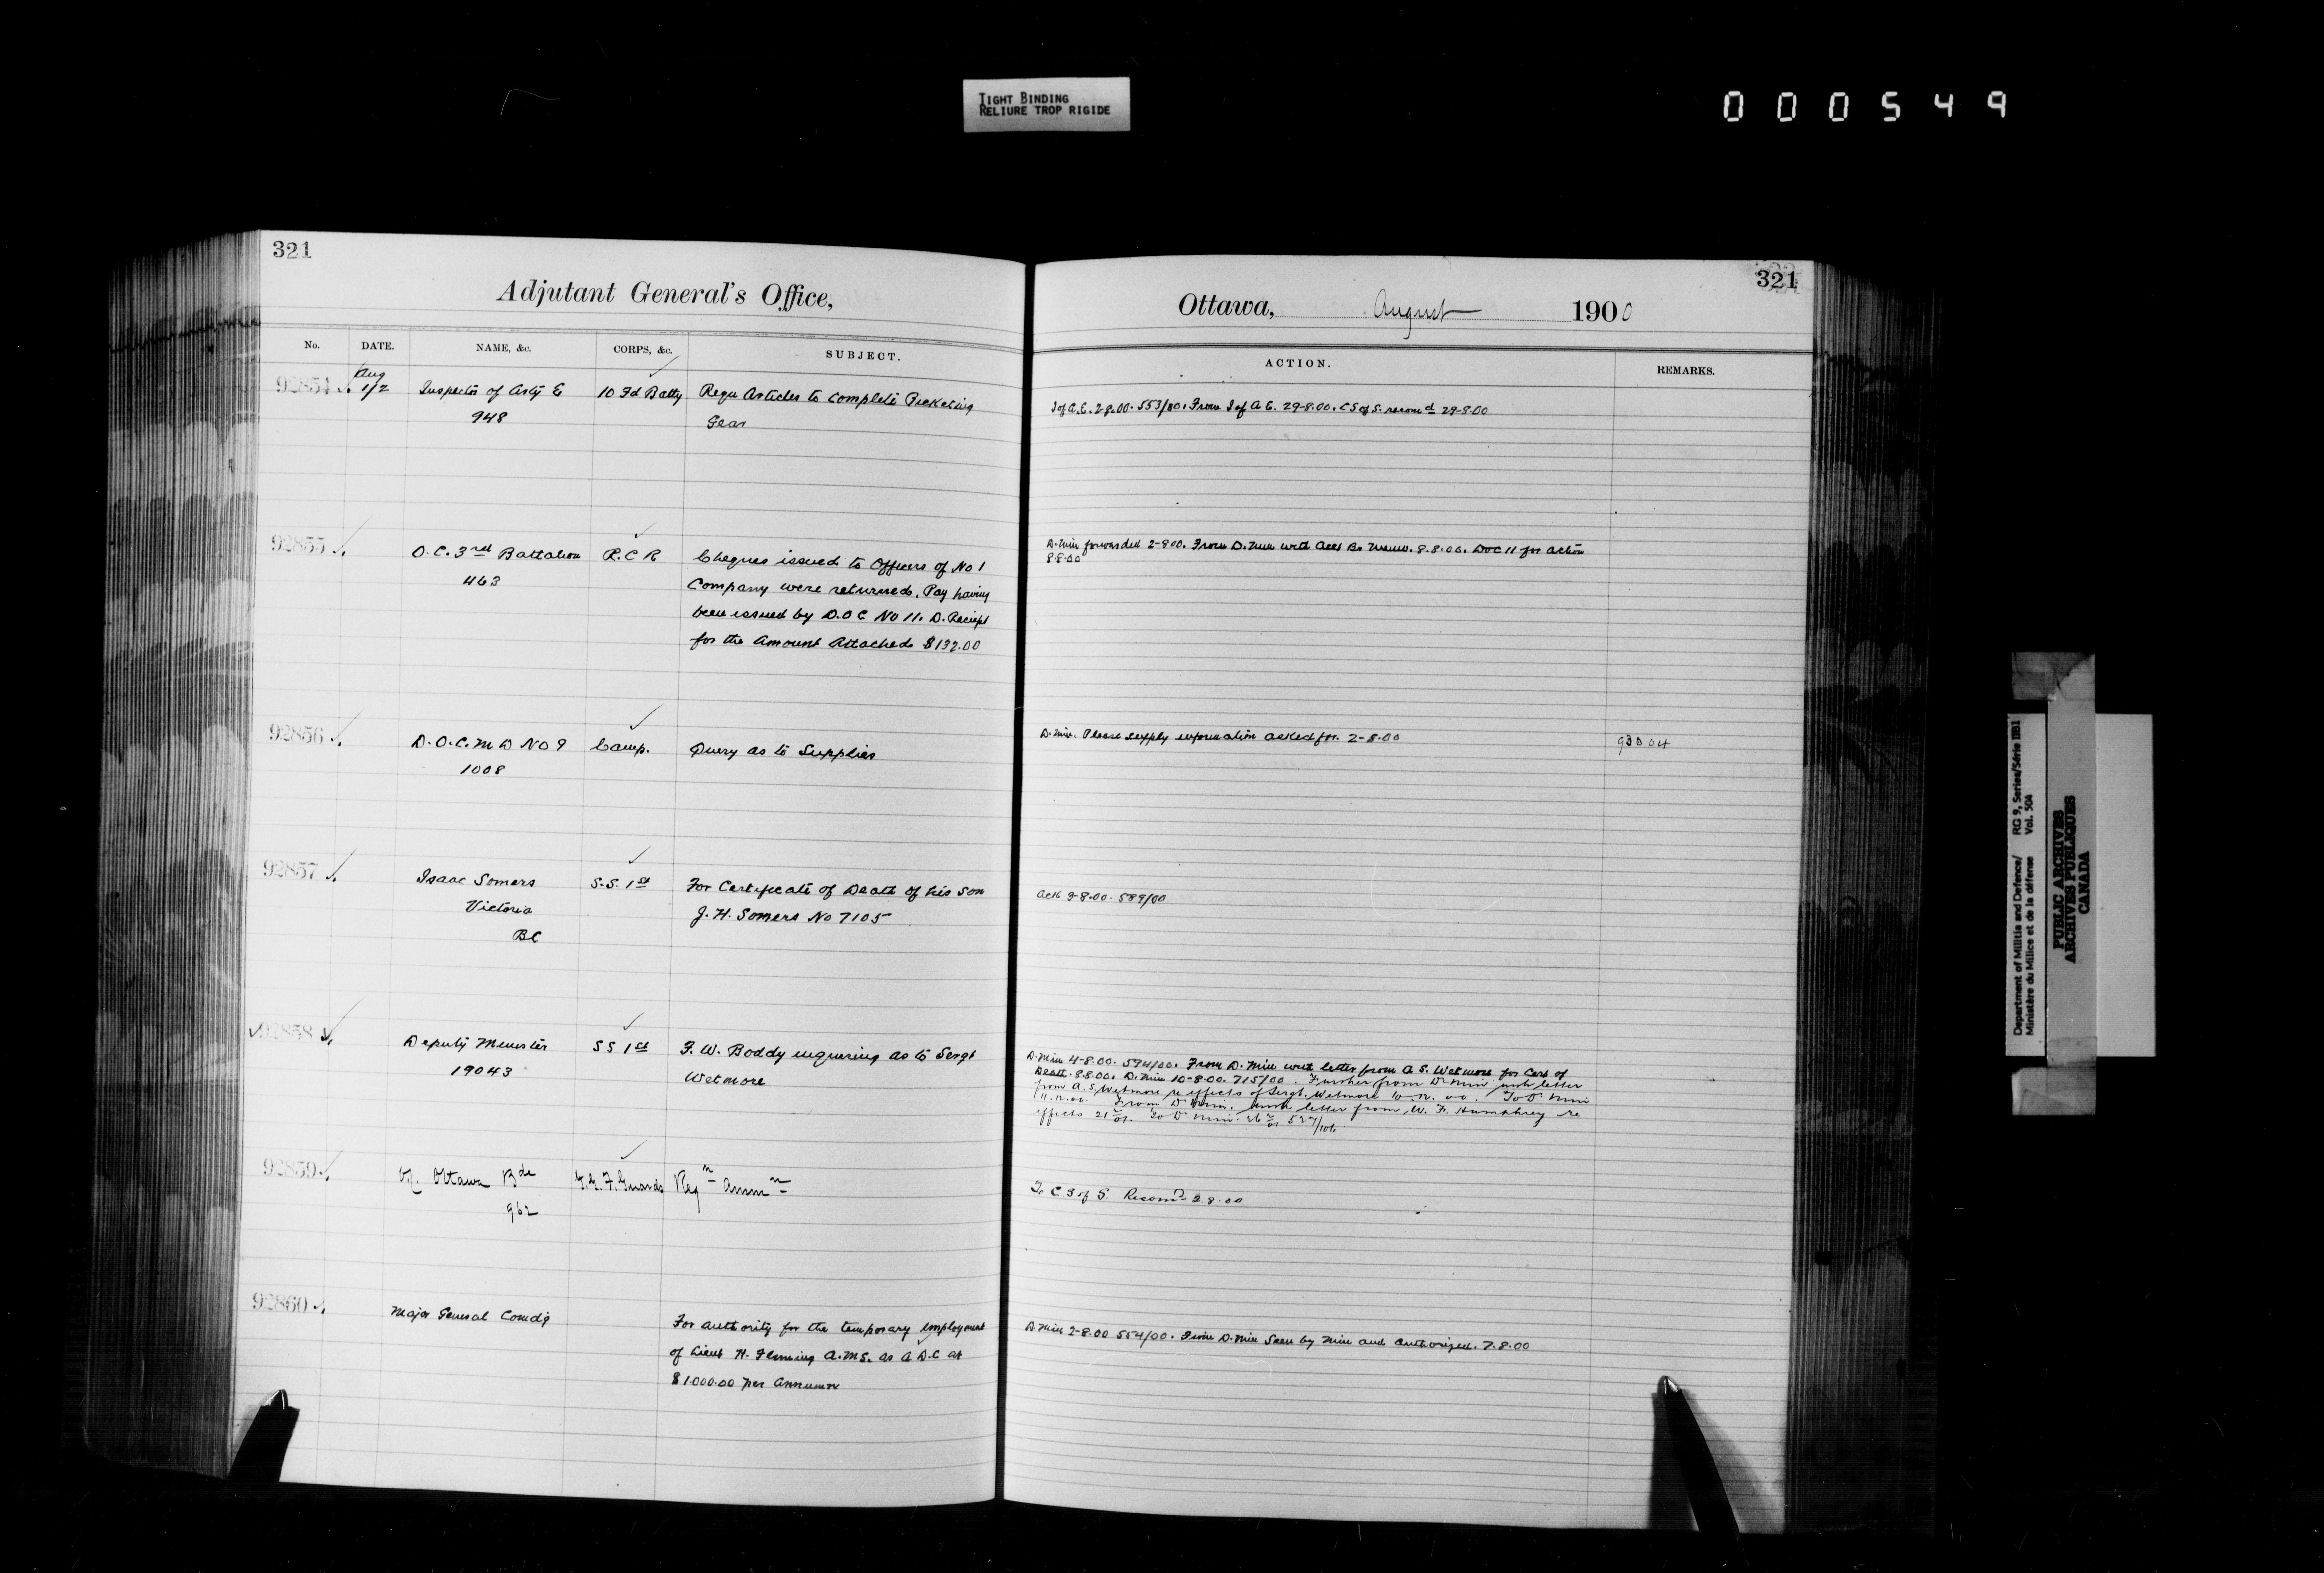 TIGHT BINDING
RELIURE TROP RIGIDE
000549
321
Adjutant General's Office,
No. DATE. NAME, &c. CORPS, &c. SUBJECT.
92854 Aug 1/2 Inspector of Arty E 10 Fd Batty Requ Articles to complete Picketing
948 Gear
92855 O.C. 3rd Battalion R.C R Cheques issued to Officers of No 1
463 Company were returned. Pay having
been issued by D.O.C No 11. D. Reciept
for the Amount Attached $132.00
92856 D.O.C. M D No 9 Camp. Query as to Supplies
1008
92857 Isaac Somers S.S. 1st For Certificate of Death of his son
Victoria J. H. Somers No 7105
BC
92858 Deputy Minister S S 1st F. W. Boddy enquiring as to Sergt
19043 Wetmore
92859 Ottawa Bde G.G.F. Guards Regn Ammn
962
92860 Major General Comdg For authority for the temporary employment
of Lieut H. Fleming A.M.S. as A D.C at
$1.000.00 per Annum
321
Ottawa, August 1900
ACTION. REMARKS.
I of A. E. 2-8.00. 553/00. From I of A E. 29-8.00. C S of S. recomd 29-8.00
D. Min forwarded 2-8.00. From D. Min with Acct Br Memo. 8.8.00. DOC 11 for action
8.8.00
D. Min. Please supply information asked for. 2-8.00 93004
Ack 3-8.00. 589/00
D. Min 4-8.00. 594/00. From D. Min with letter from A S. Wetmore for Cert of
Death. 8.8.00. D. Min 10-8.00. 715/00. Further from D Min with letter
from A. S. Wetmore re effects of Sergt. Wetmore 10.12.00. To D Min
11.12.00. From D Min. with letter from W. F. Humphrey re
effects 21 To D Min. 26 527/106
To C S of S. Recomd 2.8.00
D. Min 2-8.00 554/00. From D. Min Seen by Min and Authorized. 7.8.00
Department of Militia and Defence/ RG 9, Series/Série IIB1
Ministère du Milice et de la défense Vol. 504
PUBLIC ARCHIVES
ARCHIVES PUBLIQUES
CANADA